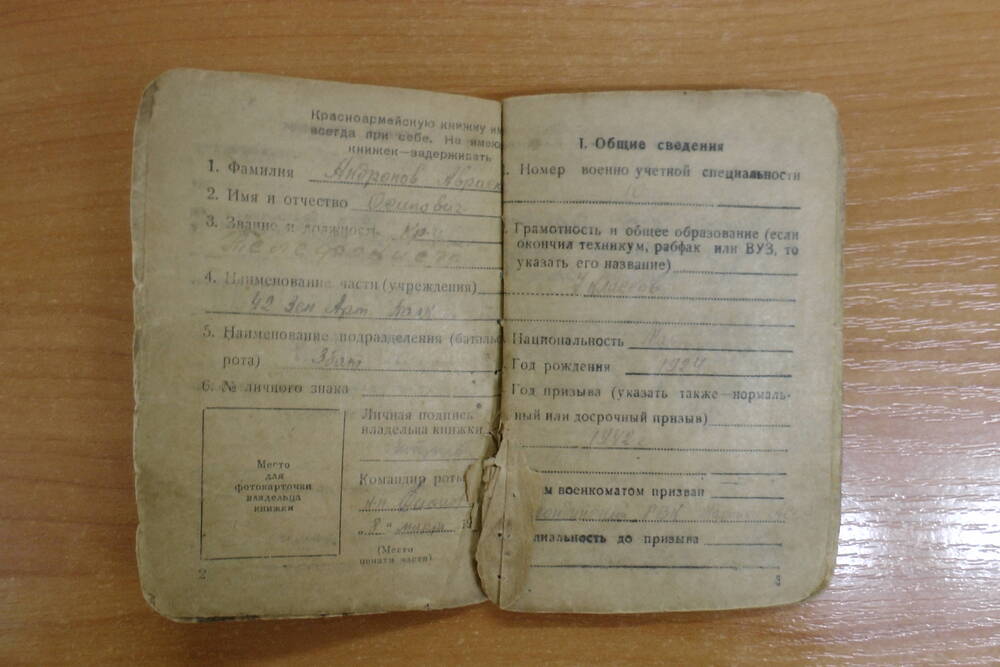 Красноармейскую книжку им
всегда при себе. Не имею
книжек—задерживать
1. Фамилия Андронов
2. Имя и отчество Осипович
3. Звание и должность
4. Наименование части (учреждения)
42 Зен Арт. полк
5. Наименование подразделения (баталь
рота) 3бат
6. № личного знака
Личная подпись
владельца книжки
Место
для
фотокарточки
владельца
книжки
Командир роты
„8“ марта
(Место
печати части)
2
I. Общие сведения
Номер военно учетной специальности
10
Грамотность и общее образование (если
окончил техникум, рабфак или ВУЗ, то
указать его название)
классов
Национальность
Год рождения 1924
Год призыва (указать также—нормаль-
ный или досрочный призыв)
1942
м военкоматом призван
РВК
циальность до призыва
3